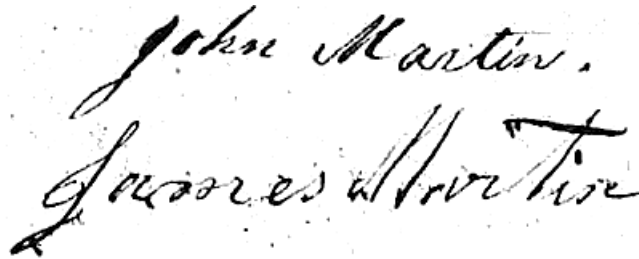 John Martin.
James Martin